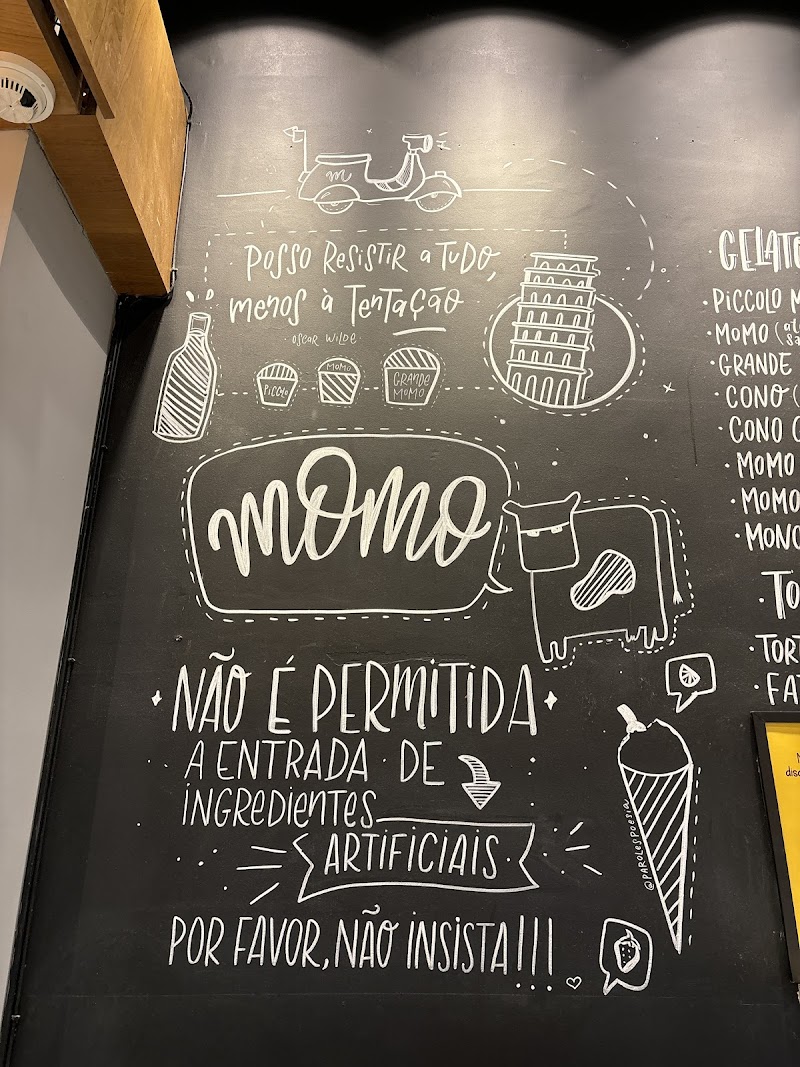 m
POSSO RESISTIR a TUDO,
menos à TenTAÇÃO
OSCAR WILDE
PICCOLO
MOMO
GRANDE
MOMO
momo
NÃO É PERMITIDA
A ENTRADA · DE
INGREDIENTES
ARTIFICIAIS·
POR FAVOR, NÃO INSISTA!!!
@PAROLESPOESIA
GELATO
·PICCOLO M
·MOMO (
·GRANDE
·CONO (
·CONO
·MOMO
·MOMO
·TORT
·FA